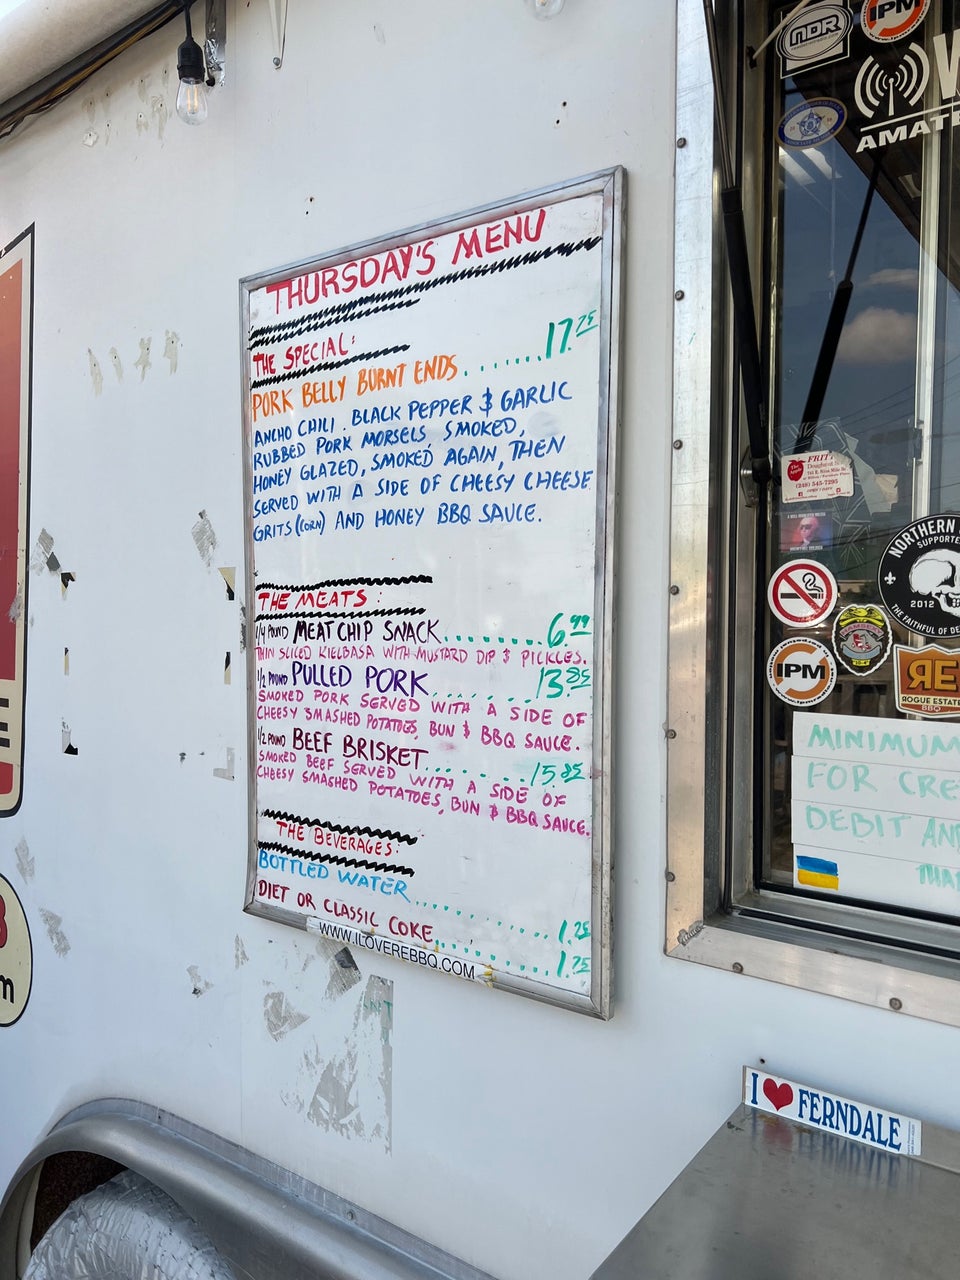 THURSDAY'S MENU
THE SPECIAL:
PORK BELLY BURNT ENDS......17.25
ANCHO CHILI, BLACK PEPPER & GARLIC
RUBBED PORK MORSELS, SMOKED,
HONEY GLAZED, SMOKED AGAIN, THEN
SERVED WITH A SIDE OF CHEESY CHEESE
GRITS (CORN) AND HONEY BBQ SAUCE.
THE MEATS:
1/4 POUND MEAT CHIP SNACK.........6.99
THIN SLICED KIELBASA WITH MUSTARD DIP & PICKLES.
1/2 POUND PULLED PORK.........13.85
SMOKED PORK SERVED WITH A SIDE OF
CHEESY SMASHED POTATOES, BUN & BBQ SAUCE.
1/2 POUND BEEF BRISKET.........15.85
SMOKED BEEF SERVED WITH A SIDE OF
CHEESY SMASHED POTATOES, BUN & BBQ SAUCE.
THE BEVERAGES:
BOTTLED WATER..............1.25
DIET OR CLASSIC COKE..........1.75
WWW.ILOVEREBBQ.COM
NDR
IPM
AMATE
FRITZ
(248) 545-7295
NORTHERN
SUPPORTE
2012
THE FAITHFUL OF DE
IPM
RE
ROGUE ESTATE
BBQ
MINIMUM
FOR CRE
DEBIT AN
THA
I ❤ FERNDALE
E
3
m